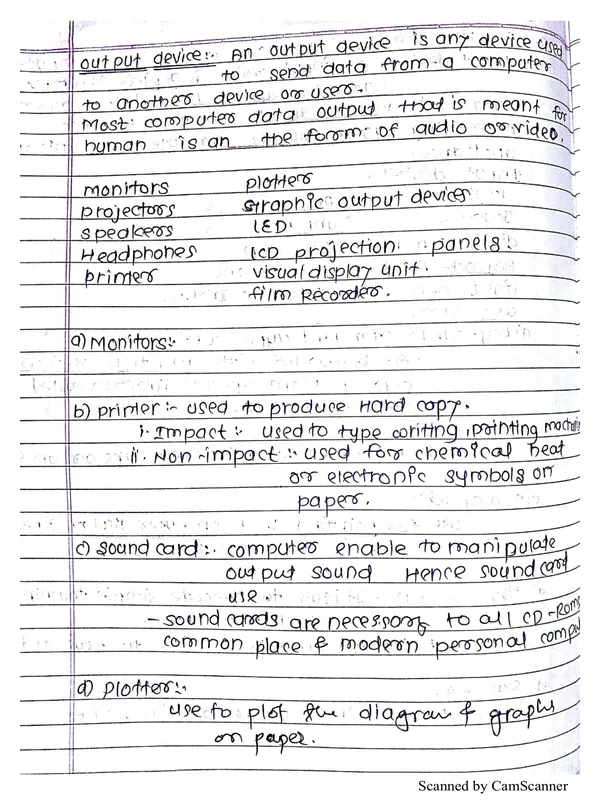 output device:- An output device is any device used
to send data from a computer
to another device or user.
Most computer data output that is meant for
human is an the form of audio or video.
monitors plotter
projectors Graphic output devices
speakers LED
Headphones LCD projection panels
primer visual display unit.
film Recorder.
a) Monitors:-
b) primer :- used to produce Hard copy.
i. Impact :- used to type writing, printing machine
ii. Non-impact :- used for chemical heat
or electronic symbols on
paper.
c) Sound card:- computer enable to manipulate
output sound Hence sound card
use -
- sound cards are necessory to all CD-Roms
common place & modern personal compu
d) Plotter:-
use to plot the diagram & graphs
on paper.
Scanned by CamScanner